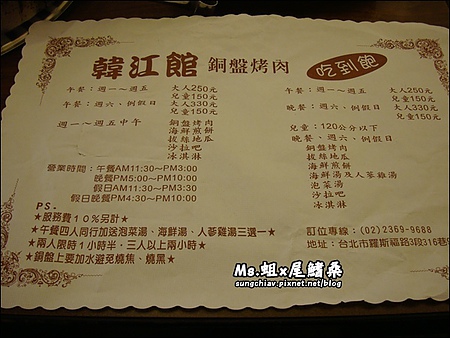 韓江館 銅盤烤肉 吃到飽
午餐：週一～週五 大人250元
兒童150元
午餐：週六、例假日 大人330元
兒童150元
週一～週五中午 銅盤烤肉
海鮮煎餅
拔絲地瓜
沙拉吧
冰淇淋
營業時間：午餐AM11:30～PM3:00
晚餐PM5:00～PM10:00
假日AM11:30～PM3:30
假日PM4:30～PM10:00
PS.
★服務費10%另計★
★午餐四人同行加送泡菜湯、海鮮湯、人蔘雞湯三選一★
★兩人限時1小時半、三人以上兩小時★
★銅盤上要加水避免燒焦、燒黑★
午餐：週一～週五 大人250元
兒童150元
晚餐：週六、例假日 大人330元
兒童150元
兒童：120公分以下
晚餐、週六、例假日
銅盤烤肉
拔絲地瓜
海鮮煎餅
海鮮湯及人蔘雞湯
泡菜湯
沙拉吧
冰淇淋
訂位專線：(02)2369-9688
地址：台北市羅斯福路3段316巷
Ms.蛆x尾鰭桑
sungchiav.pixnet.net/blog